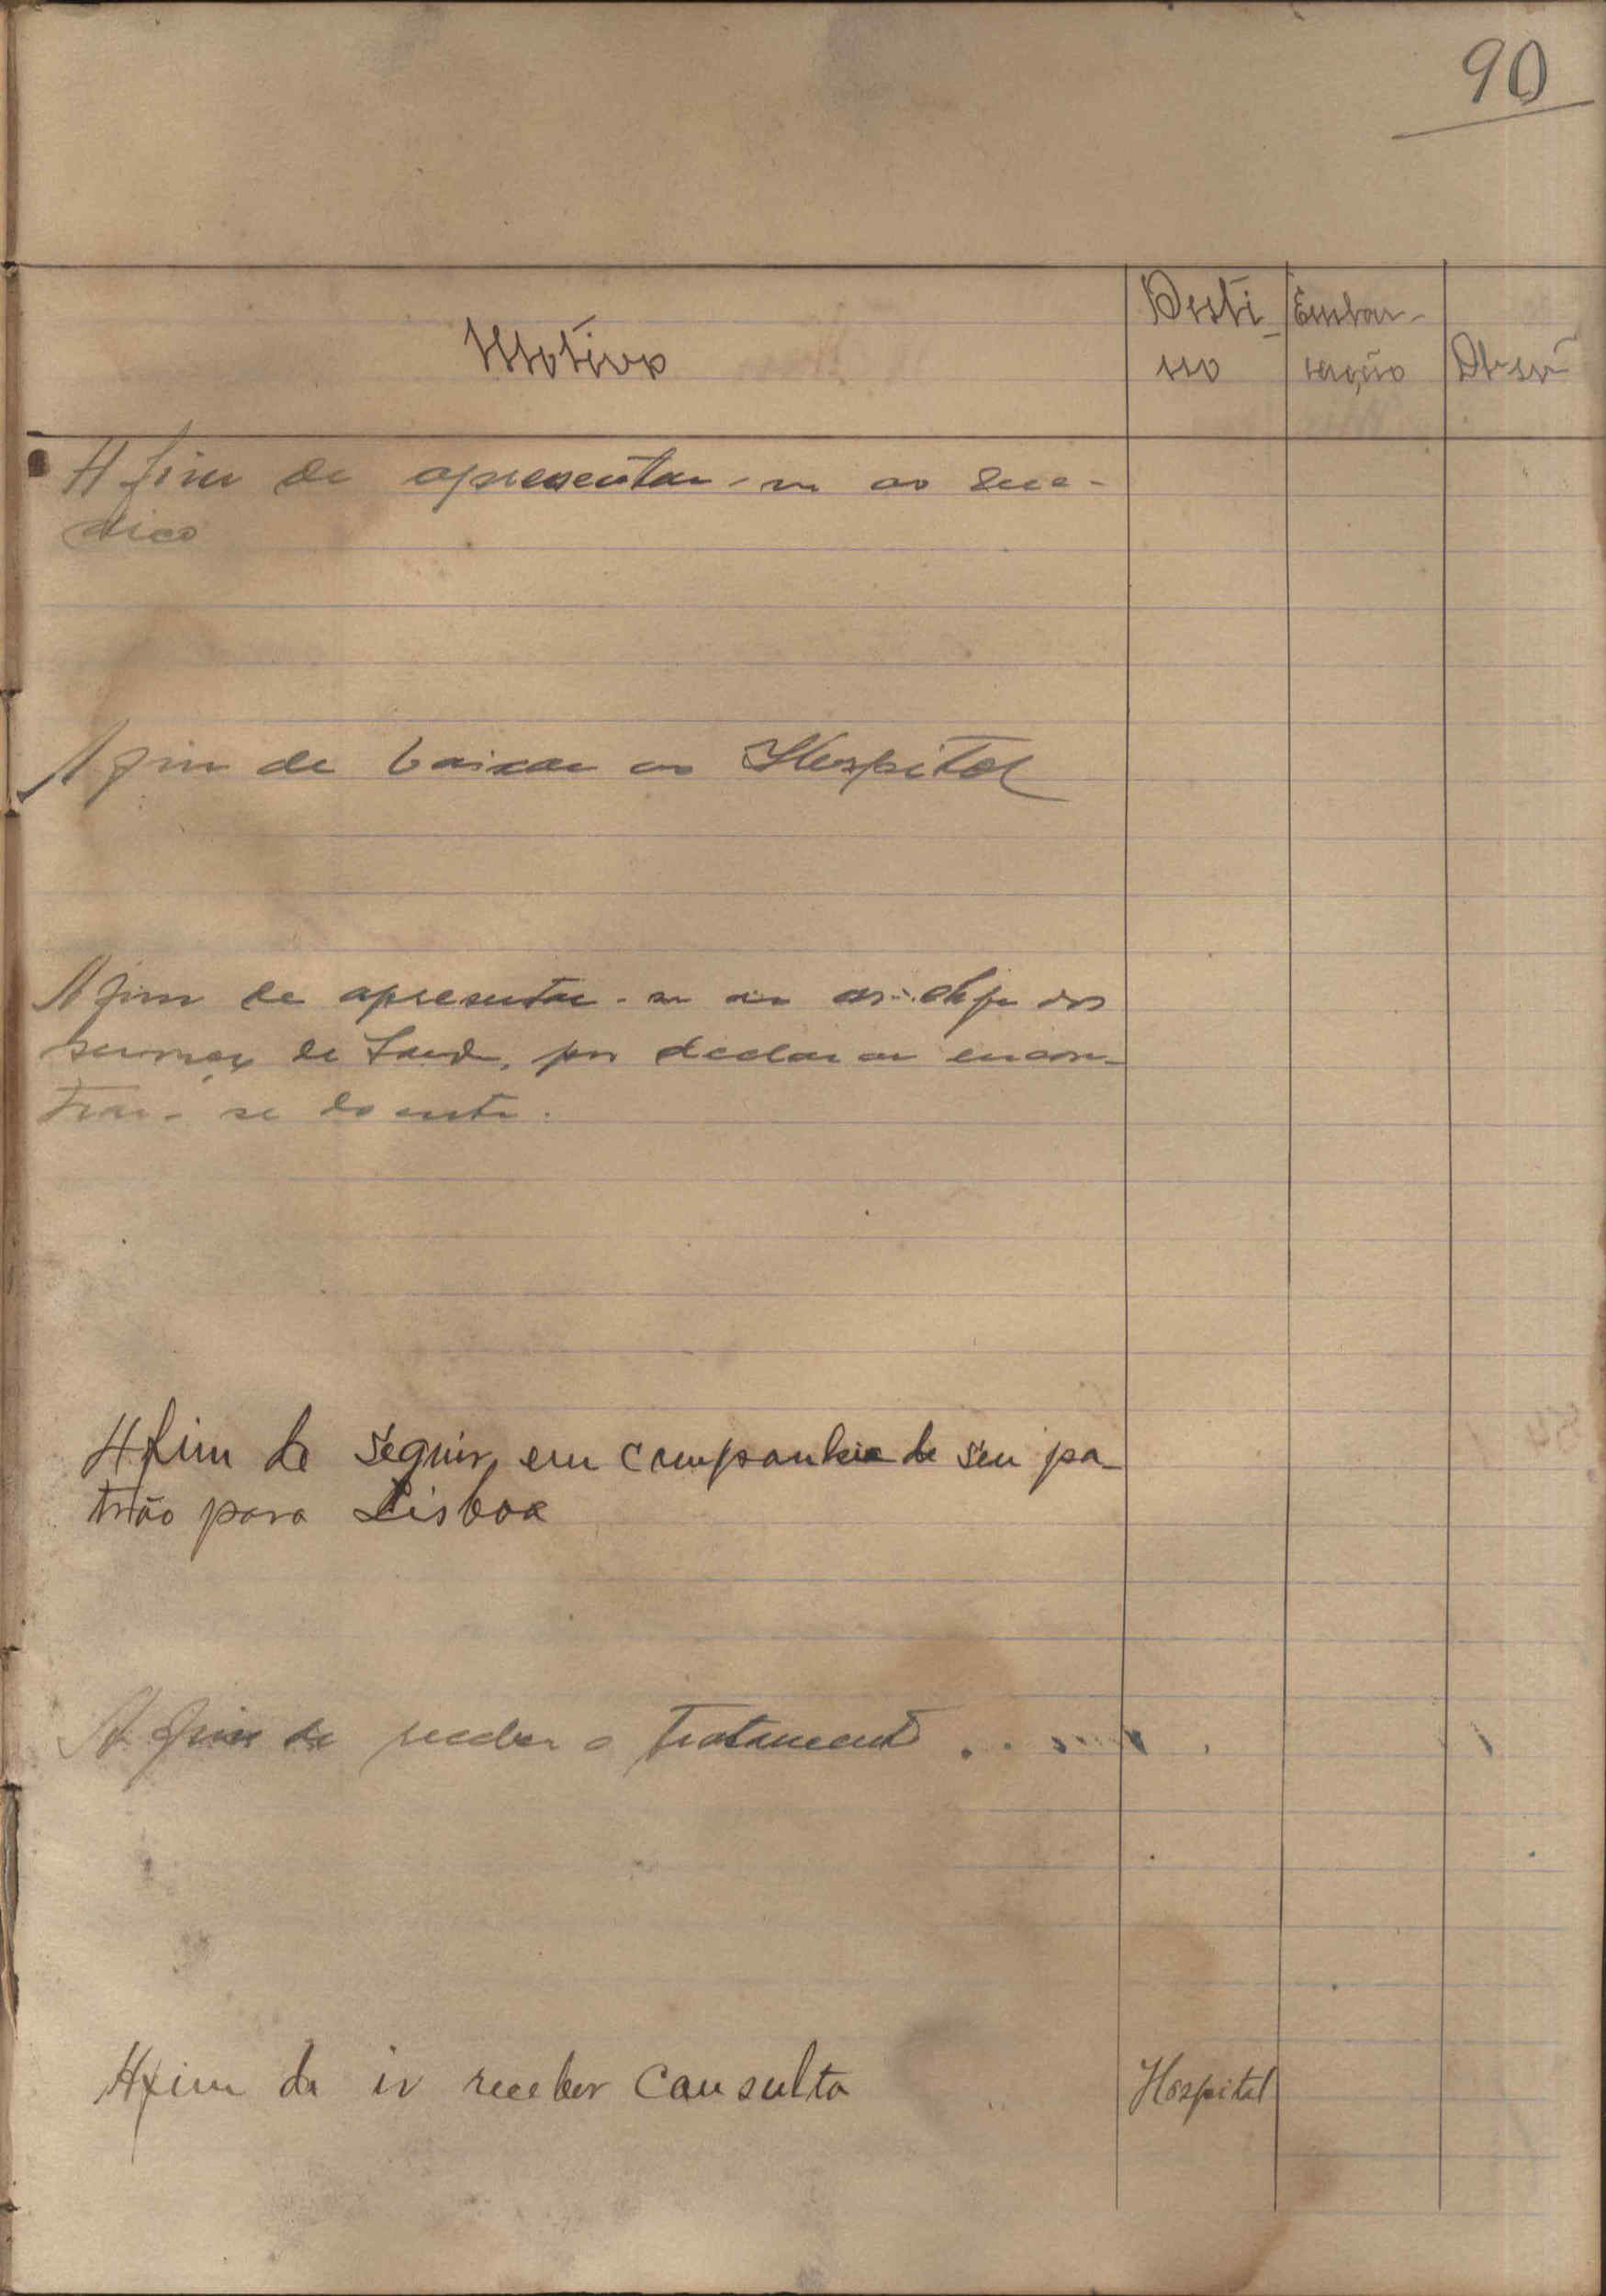 90
Motivo
Desti-
no
Embar-
cação
Obsv
A fim de apresentar-se ao me-
dico
A fim de baixar ao Hospital
A fim de apresentar-se ao chefe dos
serviços de Saude, por declarar encon-
trar-se doente.
Afim de seguir em companhia de seu pa-
trão para Lisboa
A fim de receber o tratamento
Afim de ir receber consulta
Hospital